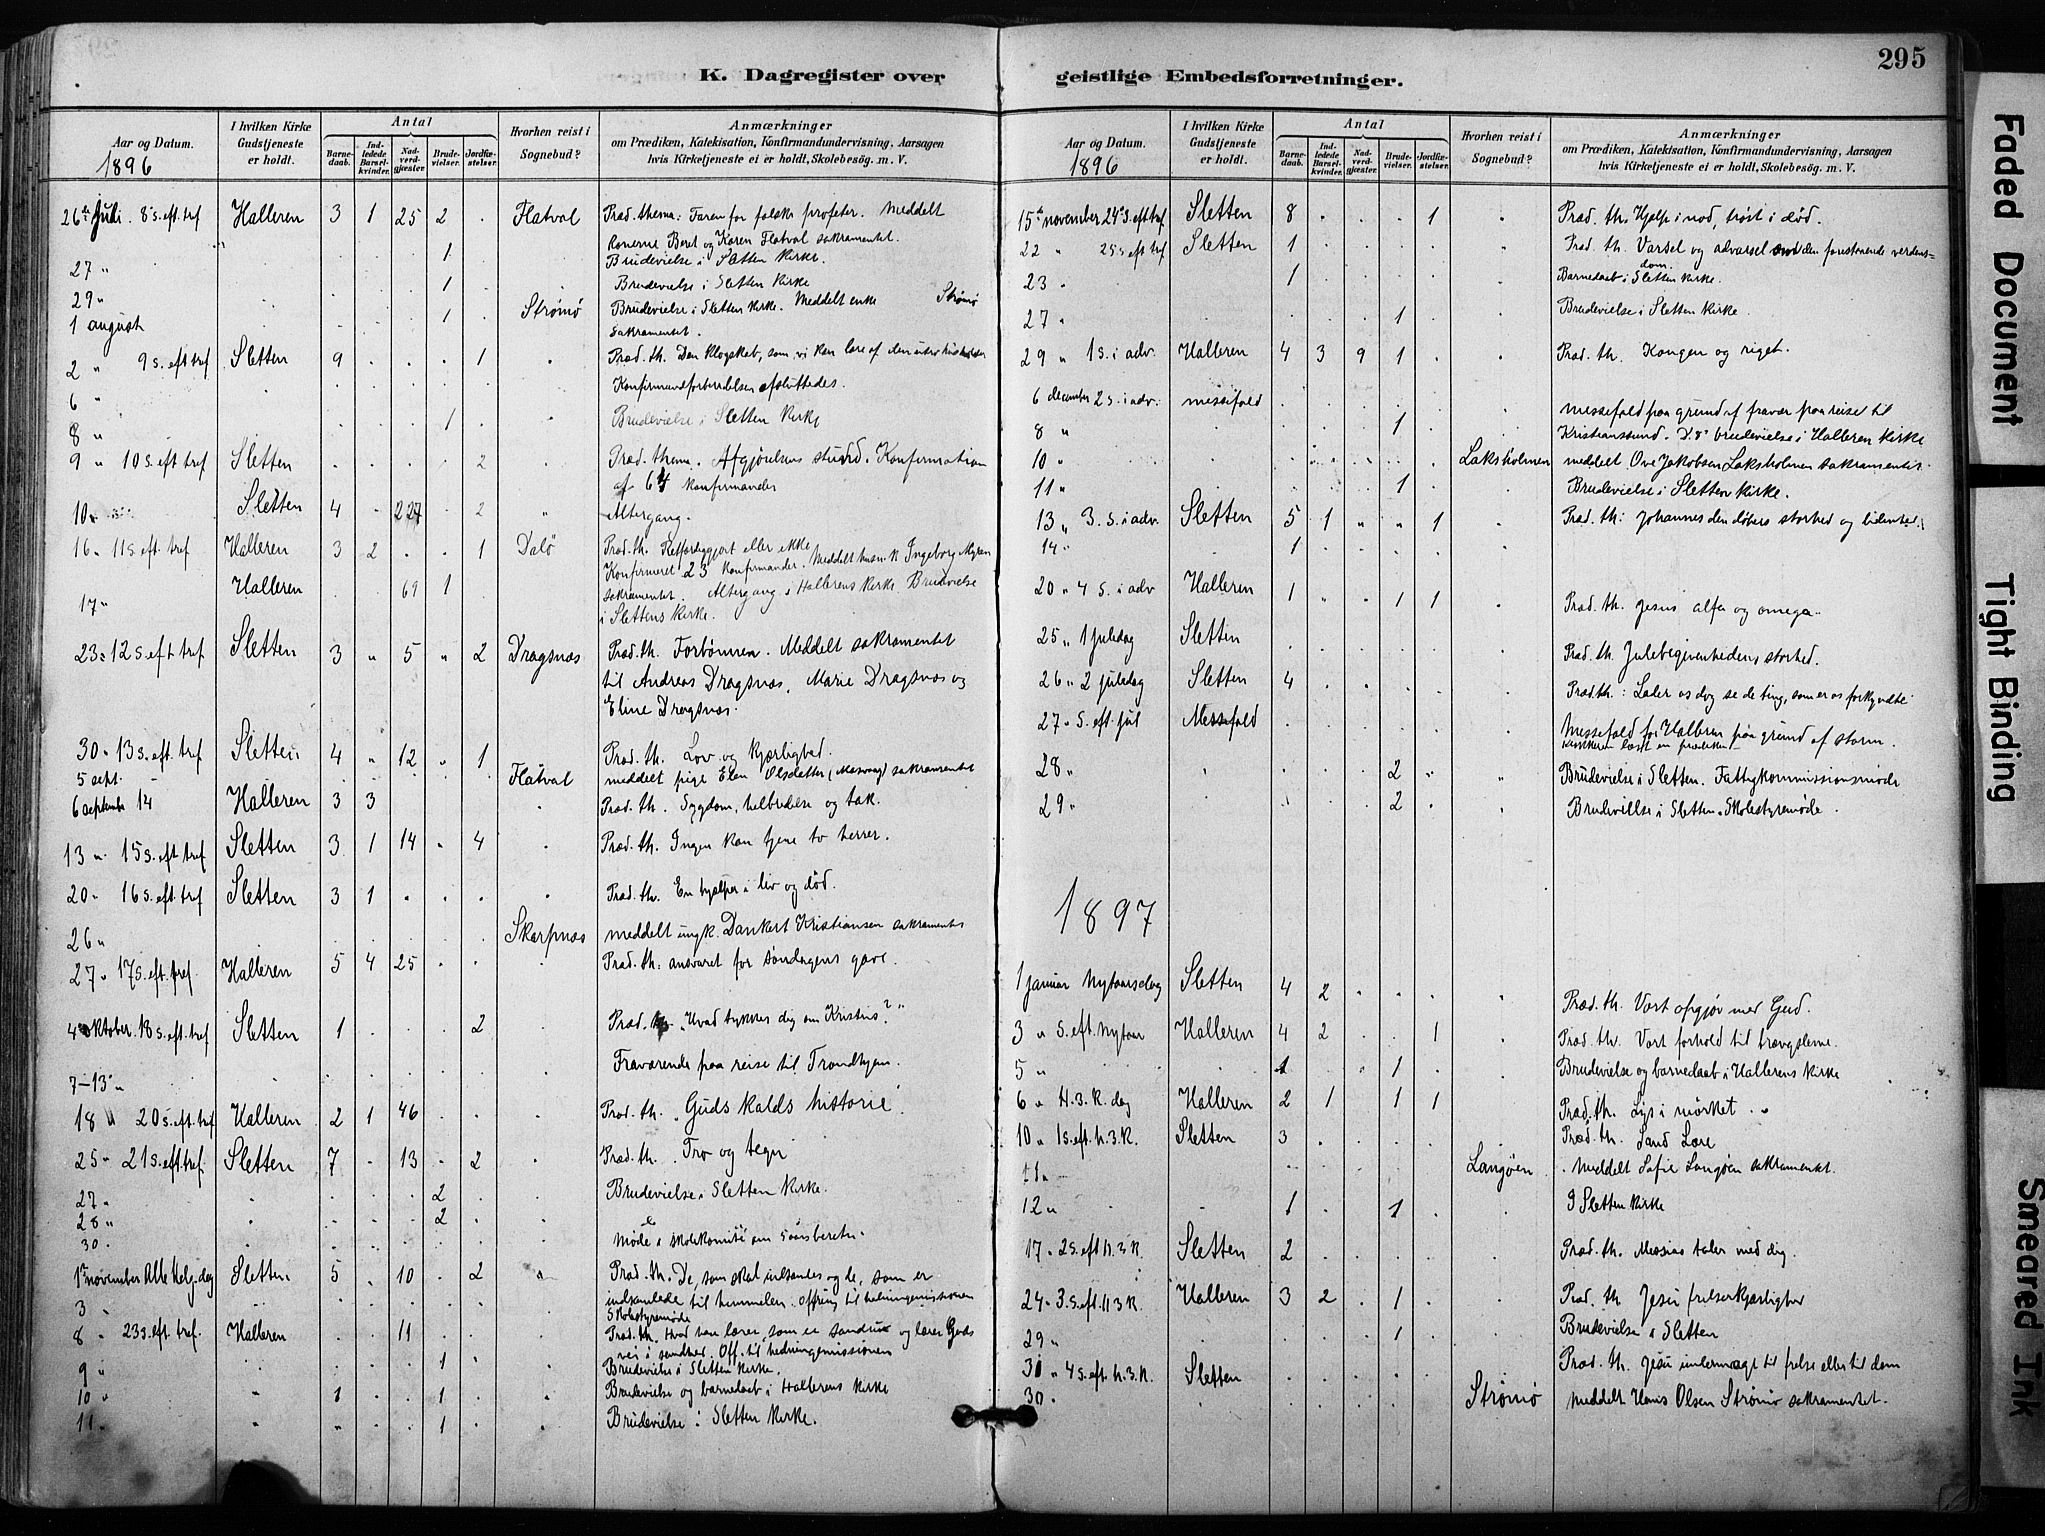 295
K. Dagregister over geistlige Embedsforretninger.
Aar og Datum. I hvilken Kirke Gudstjeneste er holdt. Antal Barnedaab. Indledede Barselkvinder. Nadverdgjæster. Brudevielser. Jordfæstelser. Hvorhen reist i Sognebud? Anmærkninger om Prædiken, Katekisation, Konfirmandundervisning, Aarsagen hvis Kirketjeneste ei er holdt, Skolebesøg. m. V.
1896
26de Juli. 8 s. eft. tref Halleren 3 1 25 2 . Flatval Præd. thema: Faren for falske profeter. Meddelt
konerne Beret og Karen Flatval sakramentet.
27 " . . . . 1 Brudevielse i Sletten Kirke.
29 " . . . . 1 Brudevielse i Sletten Kirke
1 august . . . . 1 Strömö Brudevielse i Sletten Kirke. Meddelt enke Strömö
sakramentet.
2 " 9 s. eft tref Sletten 9 . . . 1 . Præd. th. Den klogskab, som vi kan lære af den
6 " Konfirmandforberedelsen afsluttedes.
8 " . . . . 1 Brudevielse i Sletten Kirke
9 " 10 s. eft tref Sletten . . . . 2 Præd. thema. Afgjörelsens stund. Konfirmation
af 64 konfirmander
10 " Sletten 4 . 227 . 2 " Altergang.
16 " 11 s. eft. tref Halleren 3 2 . . 1 Dalö Præd. th. Retfærdiggjort eller ikke
Konfirmeret 23 konfirmander. Meddelt husm. k. Ingeborg Myren
17 " Halleren . . 69 1 sakramentet. Altergang i Hallerens Kirke Brudevielse
i Slettens Kirke.
23 " 12 s. eft tref Sletten 3 " 5 " 2 Dragsnæs Præd. th. Forbönnen. Meddelt sakramentet
til Andreas Dragsnæs, Marie Dragsnæs og
Eline Dragsnæs.
30 " 13 s. eft. tref Sletten 4 " 12 " 1 Præd. th. Lov og kjærlighed.
5 sept. Flatval meddelt pige Elen Olsdatter sakramentet
6 septembr 14 Halleren 3 3 . Præd. th. Sygdom, helbredelse og tak.
13 " 15 s. eft tref Sletten 3 1 14 . 4 . Præd. th. Ingen kan tjene to herrer.
20 " 16 s. eft. tref Sletten 3 1 . . . . Præd. th. En hjælper i liv og död.
26 " Skarpnæs meddelt ungk. Dankert Kristiansen sakramentet
27 " 17 s. eft. tref. Halleren 5 4 25 . . . Præd. th: ansvaret for söndagens gave.
4 oktober. 18 s. eft. tref Sletten 1 . . . 2 Præd. th. "Hvad tykkes dig om Kristus?"
7–13 " Fraværende paa reise til Trondhjem.
18 " 20 s. eft tref Halleren 2 1 46 . . . Præd. th. "Guds kalds historie".
25 " 21 s. eft. tref. Sletten 7 . 13 . 2 . Præd. th. Tro og tegn
27 " . . . . 2 . Brudevielse i Sletten Kirke.
28 " . . . . 2 . .
30 . Möde i skolekomité om 5 aarsberetn.
1ste november Alle Helg. dag Sletten 5 . 10 . 2 " Præd. th. De, som skal indsamles og de, som er
indsamlede til himmelen. Offring til hedningemissionen
3 " Skolestyremöde
8 " 23 s. eft. tref. Halleren . . 11 Præd. th. Hvad han lærer, som er sanddru og lærer Guds
vei i sandhed. Off. til hedningemissionen
9 " 1 Brudevielse i Sletten Kirke.
10 " 1 . . 1 Brudevielse og barnedaab i Hallerens Kirke
11 " 1 Brudevielse i Sletten Kirke.
Aar og Datum. I hvilken Kirke Gudstjeneste er holdt. Antal Barnedaab. Indledede Barselkvinder. Nadverdgjæster. Brudevielser. Jordfæstelser. Hvorhen reist i Sognebud? Anmærkninger om Prædiken, Katekisation, Konfirmandundervisning, Aarsagen hvis Kirketjeneste ei er holdt, Skolebesøg. m. V.
1896
15de november 24de s. eft tref Sletten 8 . . . 1 " Præd. th. Hjælp i nöd, tröst i död.
22 " 25 s. eft tref Sletten 1 . . . . " Præd. th. Varsel og advarsel om den forestaaende verdens-
dom.
23 " 1 Barnedaab i Sletten Kirke.
27 " 1 Brudevielse i Sletten Kirke.
29 " 1 s. i adv. Halleren 4 3 9 1 . . Præd. th. Kongen og riget.
6 december 2 s. i adv. messefald messefald paa grund af fravær paa reise til
8 " 1 Kristianssund. D. 8de brudevielse i Halleren Kirke
10 " Laksholmen meddelt Ove Jakobsen Laksholmen sakramentet.
11 " 1 Brudevielse i Sletten Kirke.
13 " 3. s. i adv. Sletten 5 1 " " 1 " Præd. th: Johannes den döbers storhed og
14 " 1
20 " 4 s. i adv Halleren 1 " . 1 1 . Præd. th. Jesus alfa og omega.
25 " 1 juledag Sletten Præd. th. Julebegivenhedens storhed.
26 " 2 juledag Sletten 4 Præd. th.: Lader os dog se de ting, som er os forkyndte
27 " s. eft. jul Messefald Messefald for Halleren paa grund af storm.
28 " 2 " Brudevielse i Sletten. Fattigkommissionsmöde
29 " 2 Brudevielse i Sletten. Skolestyremöde.
1897
1 januar Nytaarsdag Sletten 4 2 Præd. th. Vort opgjör med Gud.
3 " s. eft. Nytaar Halleren 4 2 . . 1 . Præd. th. Vort forhold til trængslerne.
5 " 1 . . 1 Brudevielse og barnedaab i Hallerens Kirke
6 " H. 3. K. dag Halleren 2 1 . 1 1 Præd. th. Lys i mörket.
10 " 1 s. eft. h. 3. K. Sletten 3 Præd. th. Sand Lære
11 " Langöen Meddelt Sofie Langöen sakramentet.
12 " 1 . . 1 I Sletten Kirke
17 " 2 s. eft h. 3 K. Sletten 2 Præd. th. Messias taler med dig.
24 " 3. s. eft. H 3 K. Halleren 3 2 . 1 Præd. th Jesu frelserkjærlighed
29 " 1 Brudevielse i Sletten
31 " 4 s. eft. h. 3. K. Sletten Præd. th. Jesu undermagt til frelse eller til dom
30 " Strömö Meddelt Hans Olsen Strömö sakramentet.
Faded Document
Tight Binding
Smeared Ink